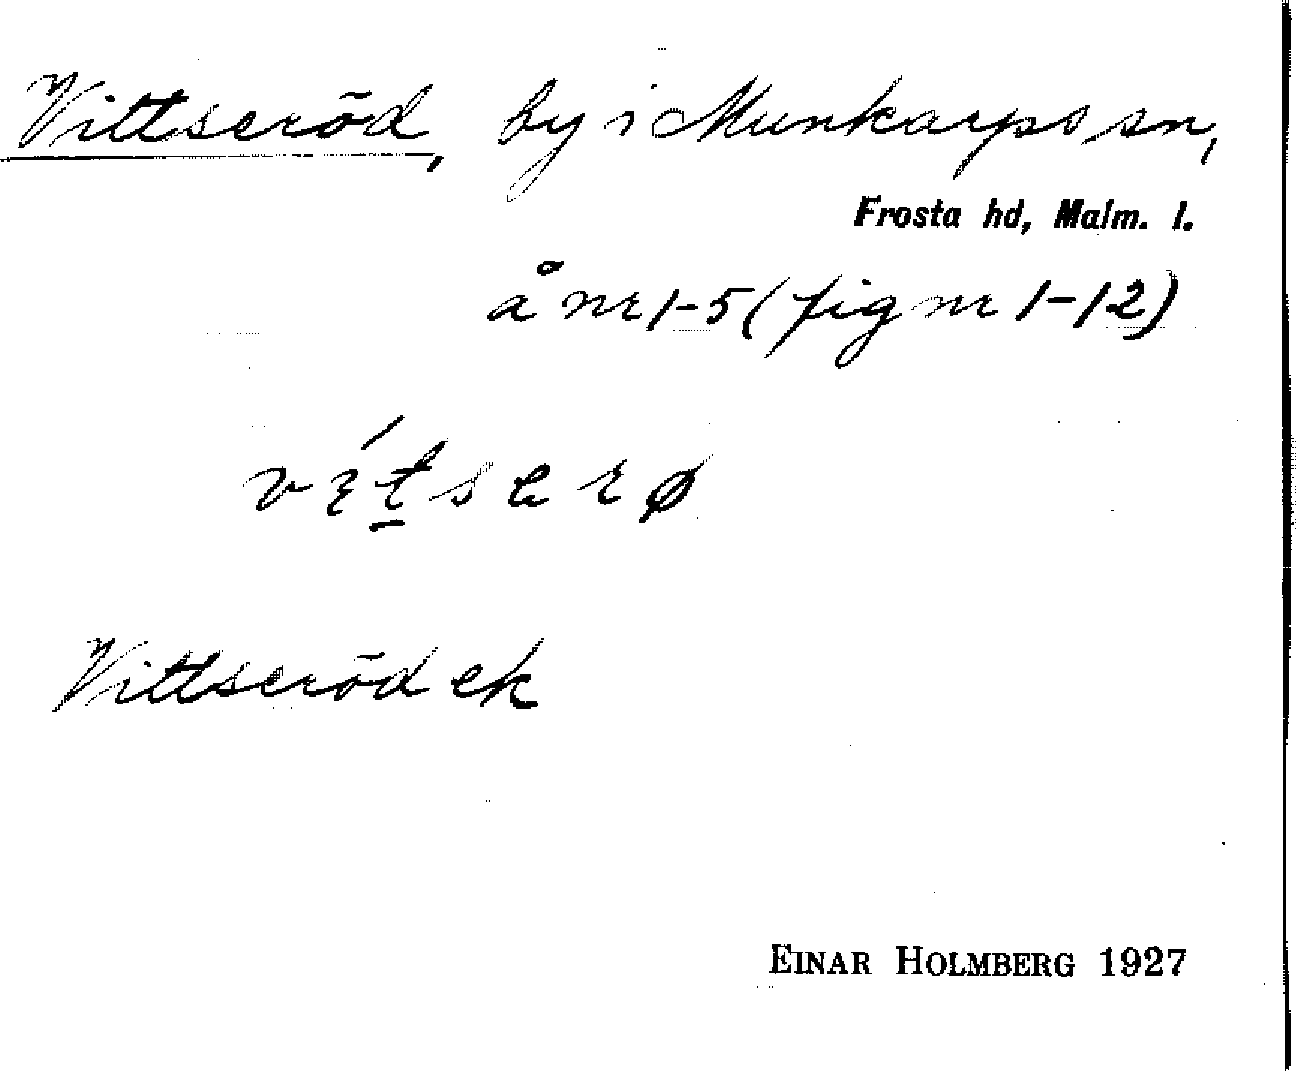 Vittseröd, by i Munkarps sn,
Frosta hd, Malm. l.
å nr 1-5 (fig nr 1-12)
vítserø
Vittseröd ek
EINAR HOLMBERG 1927